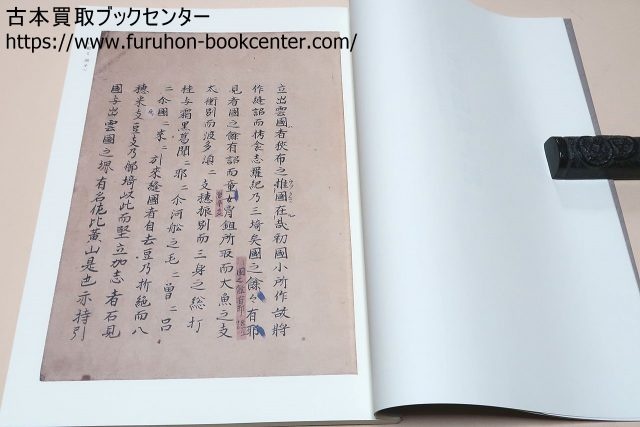 古本買取ブックセンター
https://www.furuhon-bookcenter.com/
立出雲國者狭布之推國在哉初國小所作故將
作縫詔而栲衾志羅紀乃三埼矣國之餘々有耶
見者國之餘有詔而童女胷鉏所取而大魚之支
太衝別而波多須々支穂振別而三身之総打
挂与霜黒葛聞々耶々介河舩之毛々曽々呂
々介國々来々引来縫國者自去豆乃折絶而八
穂米支豆支乃御埼以此而堅立加志者石見
國与出雲國之堺有名佐比賣山是也亦持引